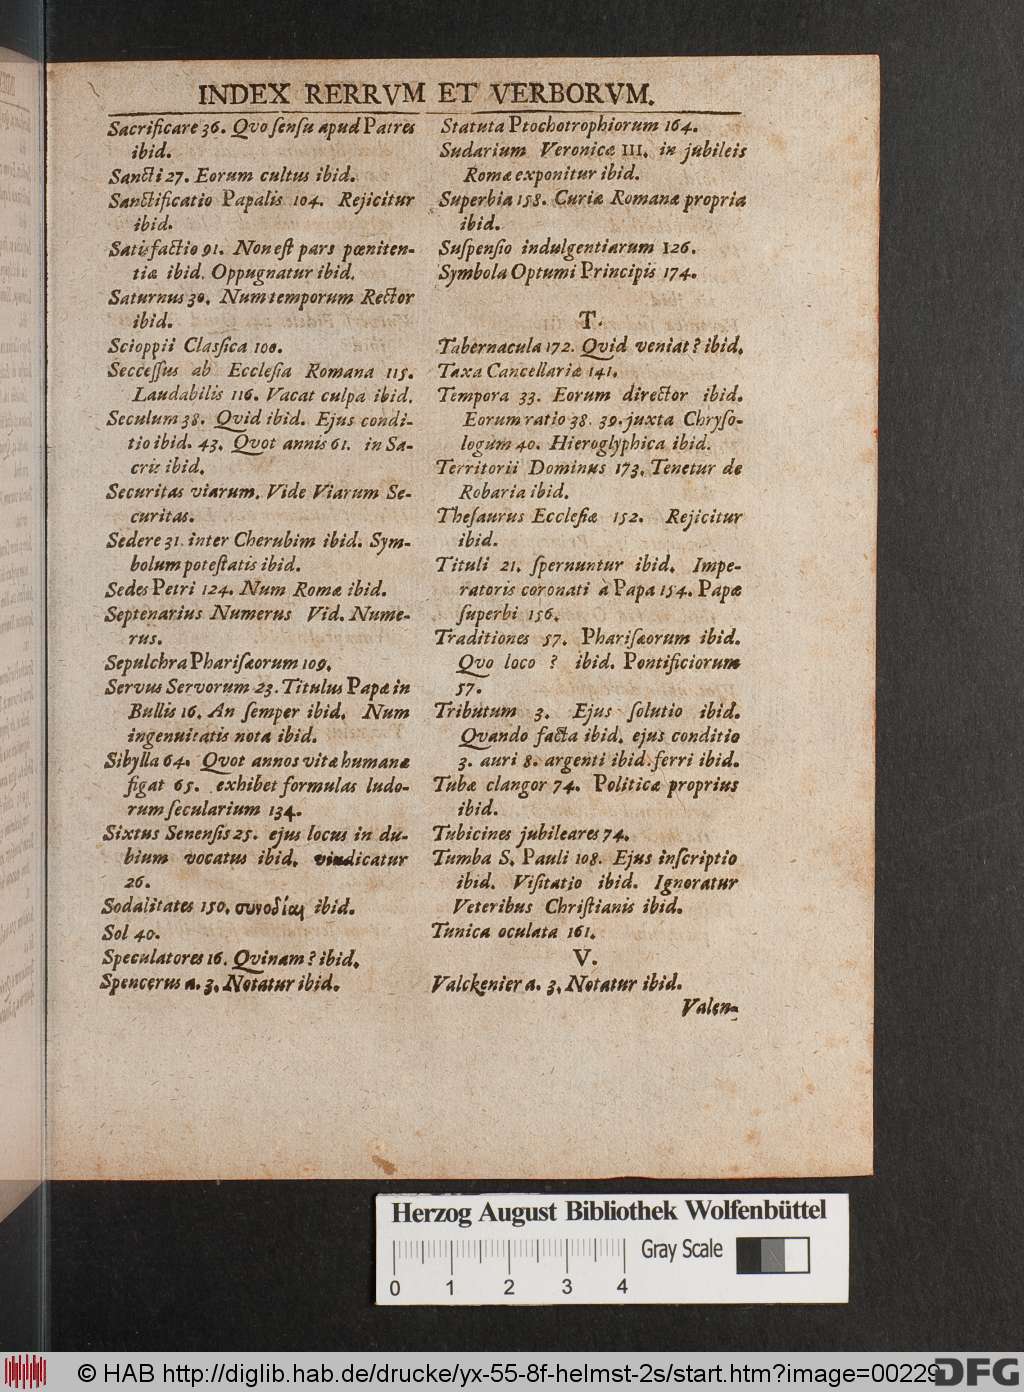 INDEX RERRVM ET VERBORVM.
Sacrificare 36. Qvo ſenſu apud Patres
ibid.
Sancti 27. Eorum cultus ibid.
Sanctificatio Papalis 104. Rejicitur
ibid.
Satisfactio 91. Non eſt pars pœniten-
tiæ ibid. Oppugnatur ibid.
Saturnus 30. Num temporum Rector
ibid.
Scioppii Claſſica 100.
Secceſſus ab Eccleſia Romana 115.
Laudabilis 116. Vacat culpa ibid.
Seculum 38. Qvid ibid. Ejus condi-
tio ibid. 43. Qvot annis 61. in Sa-
cris ibid.
Securitas viarum. Vide Viarum Se-
curitas.
Sedere 31. inter Cherubim ibid. Sym-
bolum poteſtatis ibid.
Sedes Petri 124. Num Romæ ibid.
Septenarius Numerus Vid. Nume-
rus.
Sepulchra Phariſæorum 109.
Servus Servorum 23. Titulus Papæ in
Bullis 16. An ſemper ibid. Num
ingenuitatis nota ibid.
Sibylla 64. Qvot annos vitæ humanæ
figat 65. exhibet formulas ludo-
rum ſecularium 134.
Sixtus Senenſis 25. ejus locus in du-
bium vocatus ibid. vindicatur
26.
Sodalitates 150. συνοδίαι ibid.
Sol 40.
Speculatores 16. Qvinam? ibid.
Spencerus a. 3. Notatur ibid.
Statuta Ptochotrophiorum 164.
Sudarium Veronicæ III. in jubileis
Romæ exponitur ibid.
Superbia 158. Curiæ Romanæ propria
ibid.
Suſpenſio indulgentiarum 126.
Symbola Optumi Principis 174.
T.
Tabernacula 172. Qvid veniat? ibid.
Taxa Cancellariæ 141.
Tempora 33. Eorum director ibid.
Eorum ratio 38. 39. juxta Chryſo-
logum 40. Hieroglyphica ibid.
Territorii Dominus 173. Tenetur de
Robaria ibid.
Theſaurus Eccleſiæ 152. Rejicitur
ibid.
Tituli 21. ſpernuntur ibid. Impe-
ratoris coronati à Papa 154. Papæ
ſuperbi 156.
Traditiones 57. Phariſæorum ibid.
Qvo loco ? ibid. Pontificiorum
57.
Tributum 3. Ejus ſolutio ibid.
Qvando facta ibid. ejus conditio
3. auri 8. argenti ibid. ferri ibid.
Tubæ clangor 74. Politicæ proprius
ibid.
Tubicines jubileares 74.
Tumba S. Pauli 108. Ejus inſcriptio
ibid. Viſitatio ibid. Ignoratur
Veteribus Chriſtianis ibid.
Tunica oculata 161.
V.
Valckenier a. 3. Notatur ibid.
Valen-
Herzog August Bibliothek Wolfenbüttel
Gray Scale
0 1 2 3 4
© HAB http://diglib.hab.de/drucke/yx-55-8f-helmst-2s/start.htm?image=00229
DFG